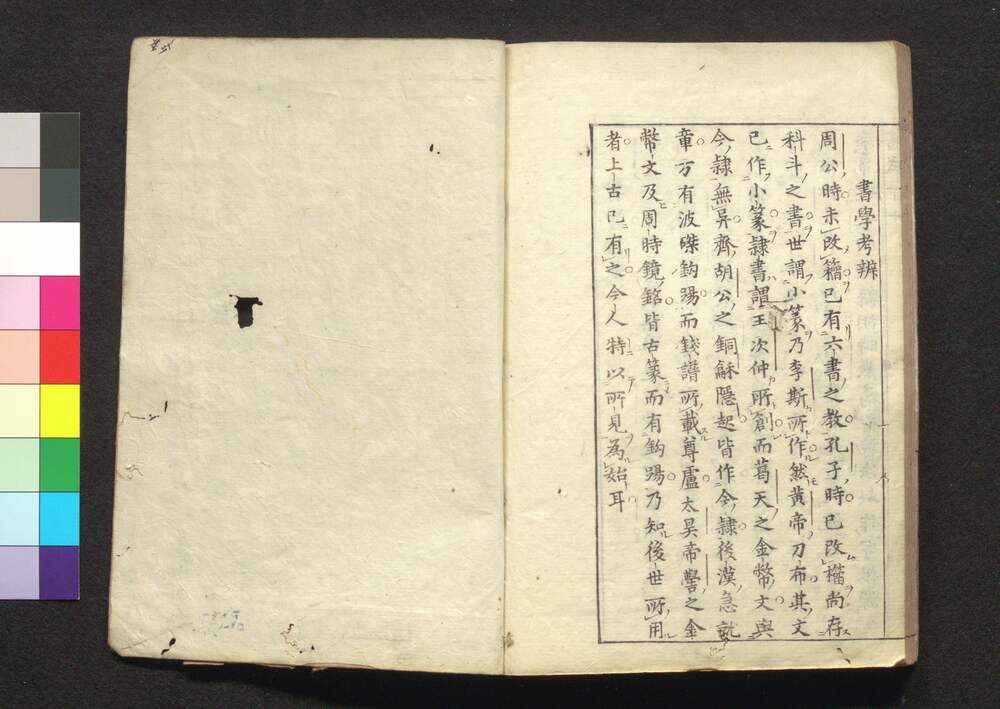 書學考辨
周公時未改籀已有六書之教孔子時已改籀尚存
科斗之書世謂小篆乃李斯所作然黃帝刀布其文
已作小篆隷書謂王次仲所創而葛天之金幣文與
今隷無异齊胡公之銅龢隱起皆作今隷後漢急就
章方有波磔鈎踢而錢譜所載尊盧太昊帝嚳之金
幣文及周時鏡銘皆古篆而有鈎踢乃知後世所用
者上古已有之今人特以所見為始耳